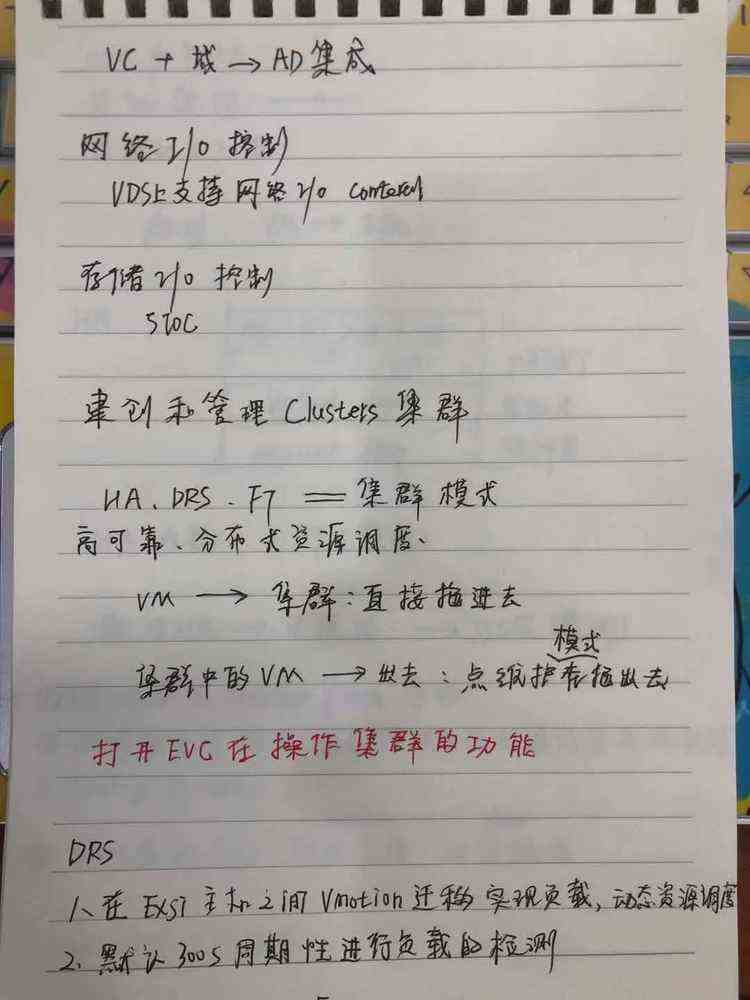 VC + 域 → AD集成
网络 I/O 控制
VDS上支持网络I/O Conterol
存储I/O 控制
SIOC
建创和管理 Clusters 集群
HA、DRS、FT = 集群模式
高可靠、分布式资源调度、
VM → 集群：直接拖进去
模式
集群中的VM → 出去：点维护在拖出去
打开EVC在操作集群的功能
DRS
1、在EXSI主机之间Vmotion迁移实现负载，动态资源调度
2、默认300S周期性进行负载的检测